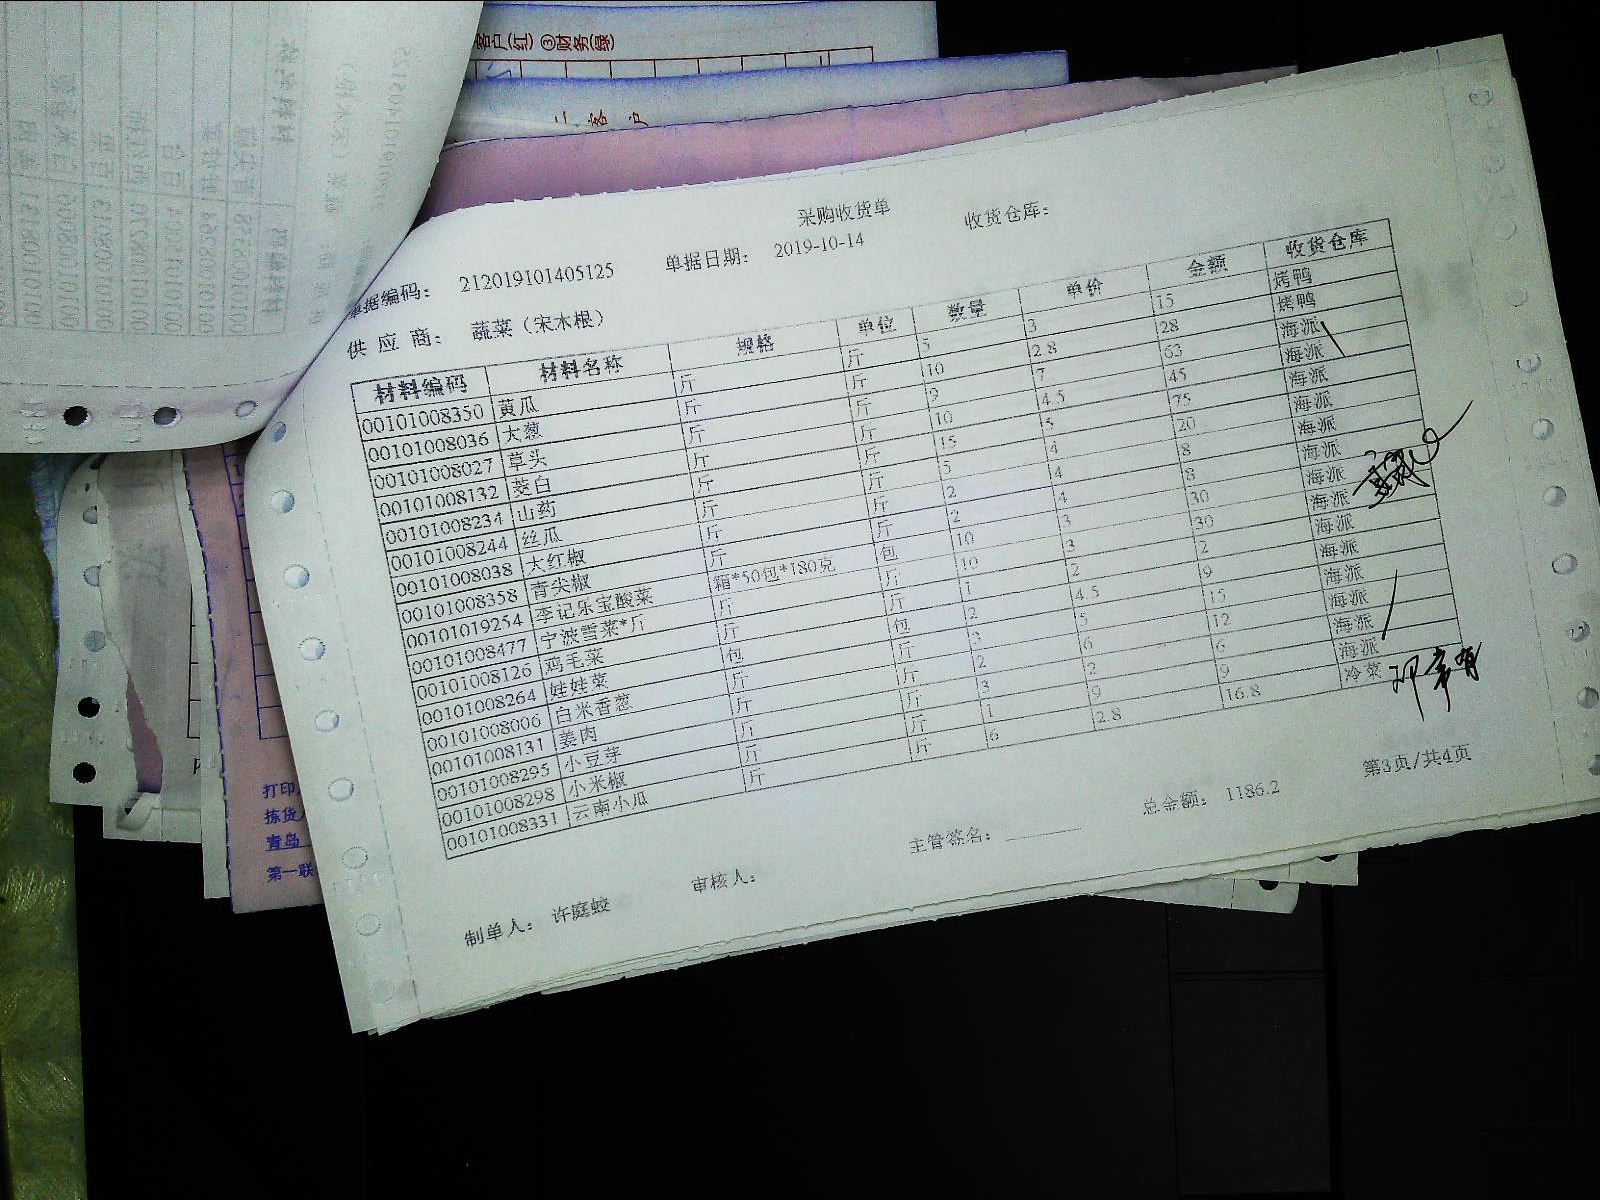 客户(红) ③财务(绿)
二 客 户
采购收货单
单据编码: 212019101405125 单据日期: 2019-10-14 收货仓库:
供 应 商: 蔬菜（宋木根）
材料编码 材料名称 规格 单位 数量 单价 金额 收货仓库
00101008350 黄瓜 斤 斤 5 3 15 烤鸭
00101008036 大葱 斤 斤 10 2.8 28 烤鸭
00101008027 草头 斤 斤 9 7 63 海派
00101008132 茭白 斤 斤 10 4.5 45 海派
00101008234 山药 斤 斤 15 5 75 海派
00101008244 丝瓜 斤 斤 5 4 20 海派
00101008038 大红椒 斤 斤 2 4 8 海派
00101008358 青尖椒 斤 斤 2 4 8 海派
00101019254 李记乐宝酸菜 箱*50包*180克 包 10 3 30 海派
00101008477 宁波雪菜*斤 斤 斤 10 3 30 海派
00101008126 鸡毛菜 斤 斤 1 2 2 海派
00101008264 娃娃菜 包 包 2 4.5 9 海派
00101008006 白米香葱 斤 斤 3 5 15 海派
00101008131 姜肉 斤 斤 2 6 12 海派
00101008295 小豆芽 斤 斤 3 2 6 海派
00101008298 小米椒 斤 斤 1 9 9 海派
00101008331 云南小瓜 斤 斤 6 2.8 16.8 冷菜
制单人: 许庭蛟 审核人: 主管签名: 总金额: 1186.2 第3页/共4页
打印
拣货
青岛
第一联